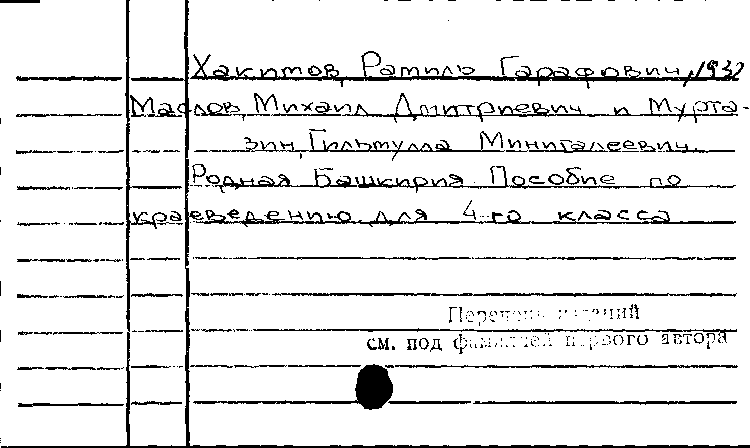 Хакимов, Рамиль Гарафович, 1932
Маслов, Михаил Дмитриевич и Мурта-
зин, Гильмулла Минигалеевич.
Родная Башкирия Пособие по
краеведению для 4-го класса
Перечень изданий
см. под фамилией первого автора